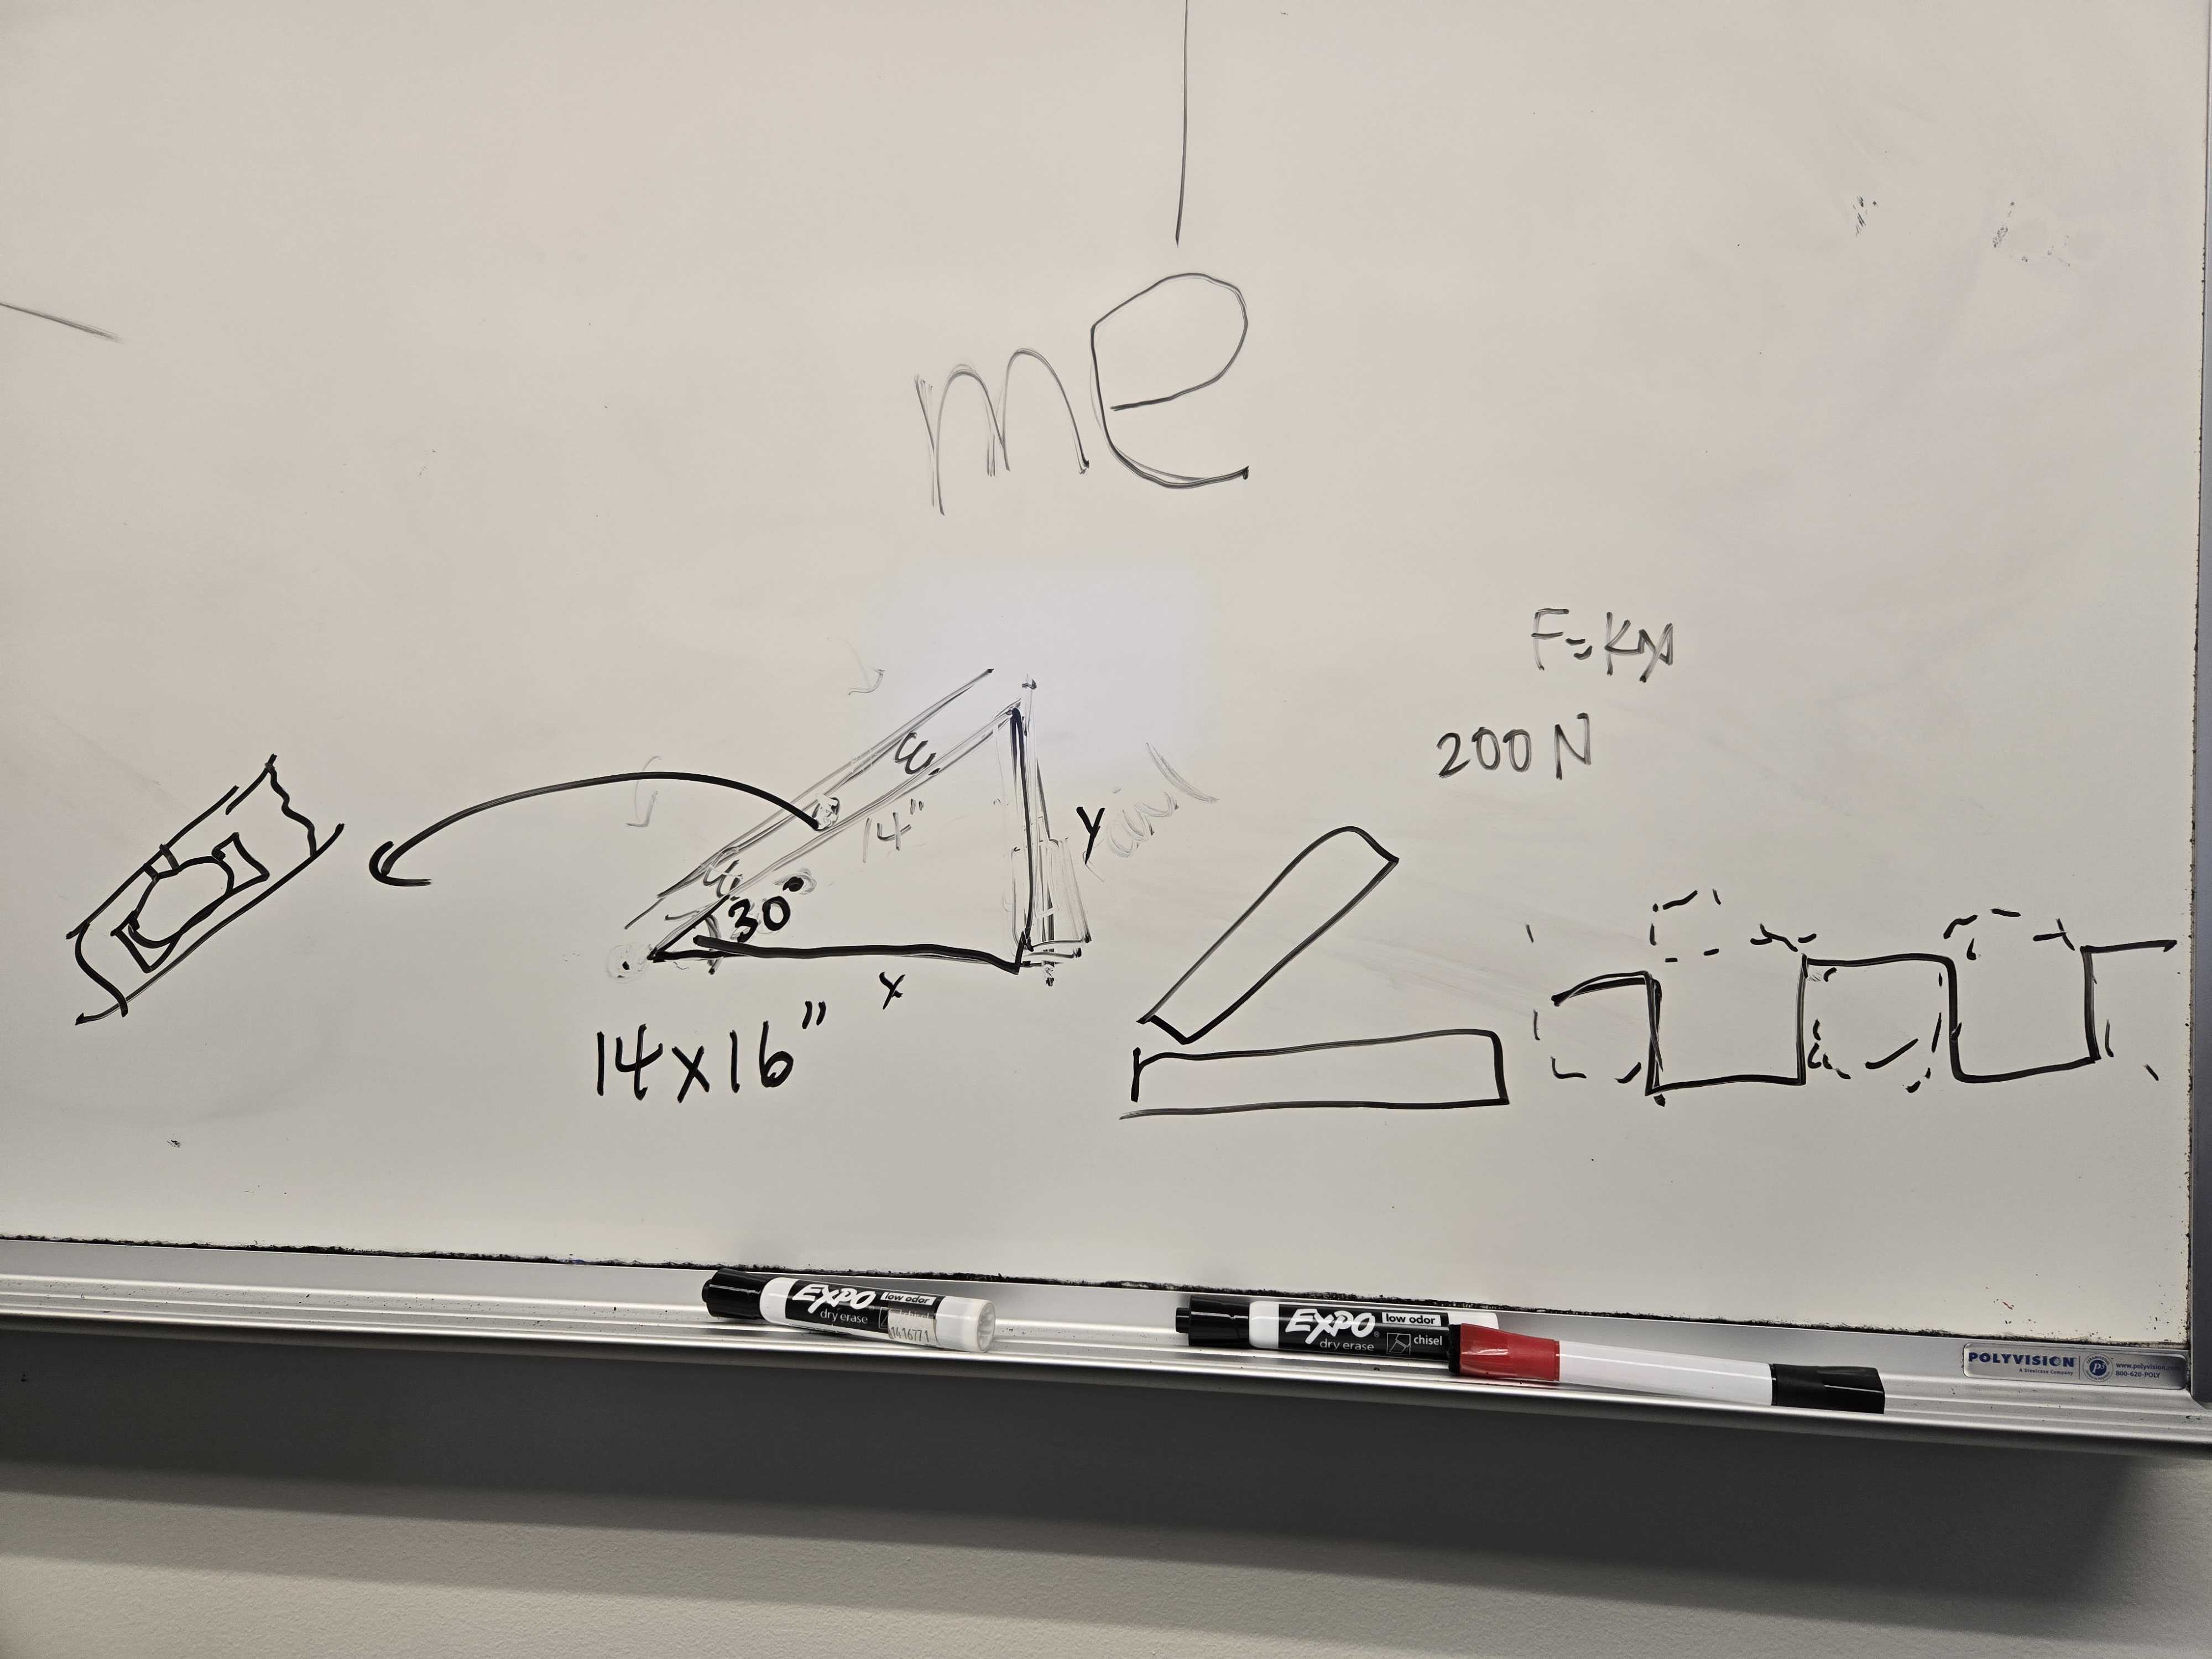 me
F=Kx
200N
14"
y
30°
x
14x16"
EXPO low odor
dry erase
1416771
EXPO low odor
dry erase chisel
POLYVISION
A Steelcase Company
www.polyvision.com
800-620-POLY